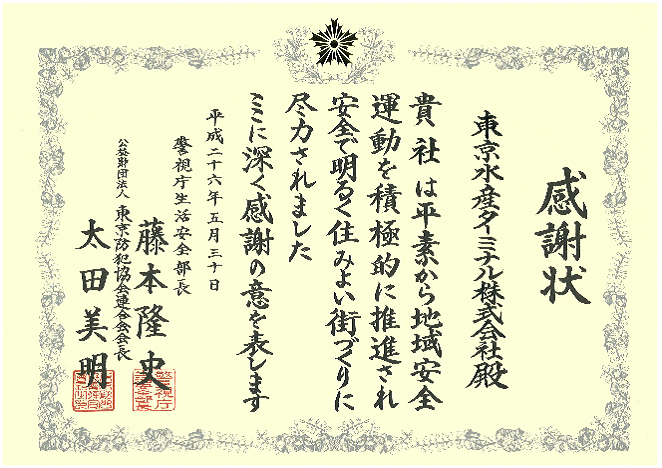 感謝状
東京水産ターミナル株式会社殿
貴社は平素から地域安全
運動を積極的に推進され
安全で明るく住みよい街づくりに
尽力されました
ここに深く感謝の意を表します
平成二十六年五月三十日
警視庁生活安全部長
藤本隆史
公益財団法人東京防犯協会連合会会長
太田美明